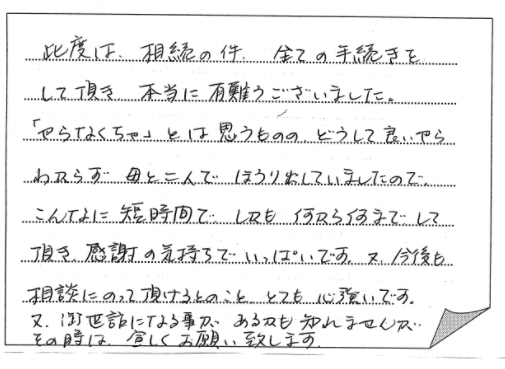 此度は、相続の件、全ての手続きを
して頂き 本当に有難うございました。
「やらなくちゃ」とは思うものの、どうして良いやら
わからず 母と二人で ほうり出していましたので、
こんなに短時間で しかも 何から何まで して
頂き、感謝の気持ちで いっぱいです。又、今後も
相談にのって頂けるとのこと とても 心強いです。
又、御世話になる事が あるかも知れませんが
その時は、宜しくお願い致します。